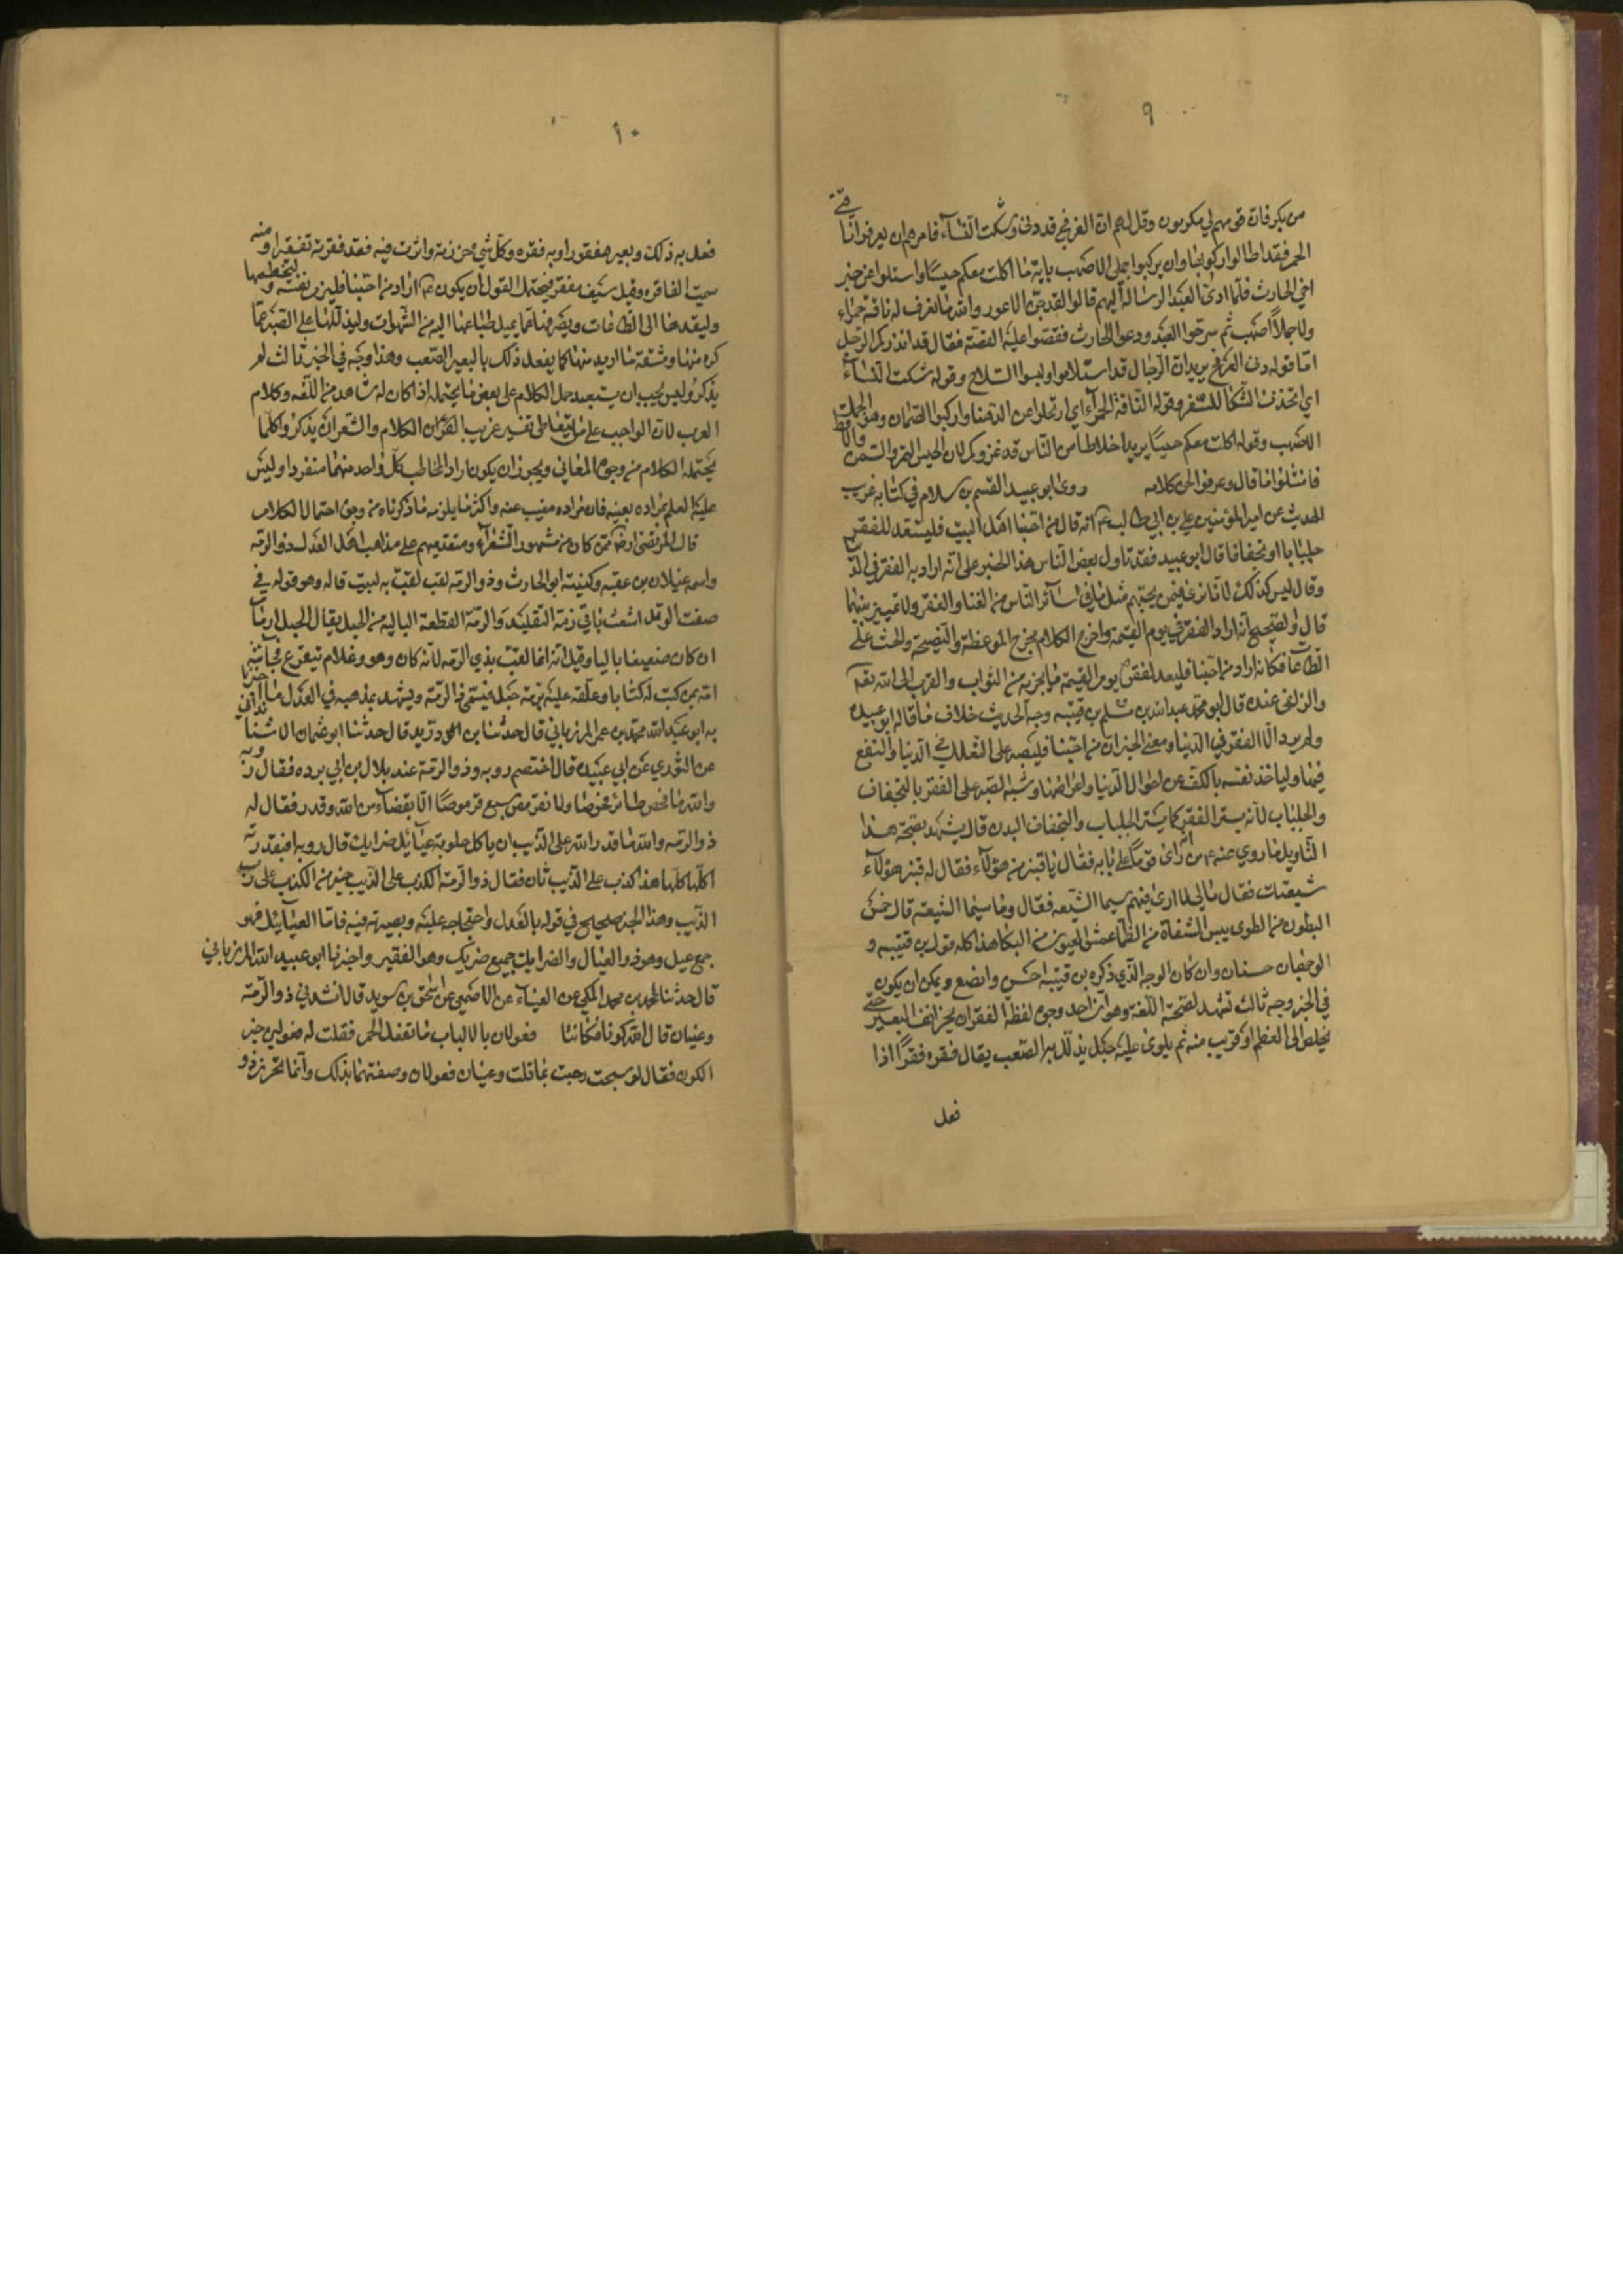 ٩
من بكر فان قومهم لي مكرمون وقل لهم ان العرفج قد دنى وشكت النساء فامرهم ان يعروا ناقتي
الحمر فقد اطالوا ركوبها وان يركبوا جملي الاصهب باية ما اكلت معكم حيسا واسئلوا عن خبر
اخي الحارث فلما ادى العبد الرسالة اليهم قالوا لقد جن الاعور والله ما نعرف له ناقة حمراء
ولا جملا اصهب ثم سرحوا العبد ودعوا الحارث فقصوا عليه القصة فقال قد انذركم الرجل
اما قوله دنى العرفج يريد ان الرجال قد استلاموا ولبسوا السلاح وقوله شكت النساء
اي اتخذن الشكا للسفر وقوله الناقة الحمراء اي ارتحلوا عن الدهنا واركبوا الصمان وهو الجمل
الاصهب وقوله اكلت معكم حيسا يريد اخلاطا من الناس قد غزوكم لان الحيس التمر والسمن والاقط
فامتثلوا ما قال وعرفوا لحن كلامه روى ابو عبيد القسم بن سلام في كتابه غريب
الحديث عن امير المؤمنين علي بن ابي طالب ع انه قال من احبنا اهل البيت فليستعد للفقر
جلبابا او تجفافا قال ابو عبيد فقد تاول بعض الناس هذا الخبر على انه اراد به الفقر في الدنيا
وقال ليس كذلك لانا نرى فيمن يحبهم مثل ما في سائر الناس من الغنا والفقر ولا تمييز بينهما
قال والصحيح انه اراد الفقر في يوم القيمة واخرج الكلام مخرج الموعظة والنصيحة والحث على
الطاعات فكانه اراد من احبنا فليعد لفقره يوم القيمة ما يجزيه من الثواب والقرب الى الله تعالى
والزلفى عنده قال ابو محمد عبد الله بن مسلم بن قتيبه وجه الحديث خلاف ما قاله ابو عبيده
ولم يرد الا الفقر في الدنيا ومعنى الخبر ان من احبنا فليصبر على التقلل في الدنيا والتقنع
فيها ولياخذ نفسه بالكف عن احوال الدنيا واعراضها وشبه الصبر على الفقر بالتجفاف
والجلباب لانه يستر الفقر كما يستر الجلباب والتجفاف البدن قال يشهد بصحة هذا
التاويل ما روي عنه ع من انه راى قوما على بابه فقال يا قنبر من هؤلاء فقال له قنبر هؤلاء
شيعتك فقال ما لي لا ارى فيهم سيما الشيعه فقال وما سيما الشيعة قال خمص
البطون من الطوى يبس الشفاة من الظما عمش العيون من البكا هذا كله قول بن قتيبه و
الوجهان حسنان وان كان الوجه الذي ذكره بن قتيبه احسن وانصع ويمكن ان يكون
في الخبر وجه ثالث تشهد لصحته اللغة وهو ان احد وجوه لفظة الفقر ان يحز انف البعير حتى
يخلص الى العظم او قريب منه ثم يلوى عليه حبل يذلل به الصعب يقال فقره فقرا اذا
فعل
١٠
فعل به ذلك وبعير مفقور وبه فقره وكل شي حززته واثرت فيه فقد فقرته تفقيرا ومنه
سميت الفاقره وقيل سيف مفقر فيحتمل القول ان يكون ع اراد من احبنا فليزم نفسه وليخطمها
وليقدها الى الطاعات ويصرفها عما يميل طباعها اليه من الشهوات وليذللها على الصبر عما
كره منها ومشقة ما اريد منها كما يفعل ذلك بالبعير الصعب وهذا وجه في الخبر ثالث لم
يذكر وليس يجب ان يستبعد حمل الكلام على بعض ما يحتمله اذا كان له شاهد من اللغه وكلام
العرب لان الواجب على من يتعاطى تفسير غريب القران الكلام والشعر ان يذكر كلما
يحتمله الكلام من وجوه المعاني ويجوز ان يكون اراد المخاطب كل واحد منهما منفردا وليس
عليه العلم بمراده بعينه فان مراده مغيب عنه واكثر ما يلزمه ما ذكرناه من وجوه احتمال الكلام
قال المرتضى رضه ممن كان من مشهور الشعراء ومتقدميهم على مذاهب اهل العدل ذو الرمه
واسمه غيلان بن عقبه وكنيته ابو الحارث وذو الرمه لقب لقب به لبيت قاله وهو قوله في
صفت الوتد اشعث باقي رمة التقليد والرمة القطعة الباليه من الحبل يقال الحبل ارماما
ان كان ضعيفا باليا وقيل انه انما لقب بذي الرمه لانه كان وهو غلام يتفزع فجاءته
امه بمن كتب له كتابا وعلقه عليه برمة حبل فسمي ذا الرمه ويشهد بمذهبه في العدل ما اخبرنا
به ابو عبد الله محمد بن عمر المرزباني قال حدثنا بن دريد قال حدثنا ابو عثمان الاشنانداني
عن التوزي عن ابي عبيده قال اختصم روبه وذو الرمة عند بلال بن ابي برده فقال روبه
والله ما فحص طائر افحوصا ولا تقرمص سبع قرموصا الا بقضاء من الله وقدر فقال له
ذو الرمه والله ما قدر الله على الذيب ان ياكل حلوبة عيائل ضرايك قال روبه افبقدرته
اكلها هذا كذب على الذيب ثان فقال ذو الرمة الكذب على الذيب خير من الكذب على رب
الذيب وهذا الخبر صحيح في قوله بالعدل واحتجاجه عليه وبصيرته فيه فاما العيائل فهو
جمع عيل وهو ذو العيال والضرايك جميع ضريك وهو الفقير واخبرنا ابو عبيد الله المرزباني
قال حدثنا احمد بن محمد المكي عن العيناء عن الاصمعي عن اسحق بن سويد قال انشدني ذو الرمه
وعينان قال الله كونا فكانتا فعولان بالالباب ما تفعل الخمر فقلت له فعولين خبر
الكون فقال لو سبحت ربحت انما قلت وعينان فعولان وصفتهما بذلك وانما تحرز ذو